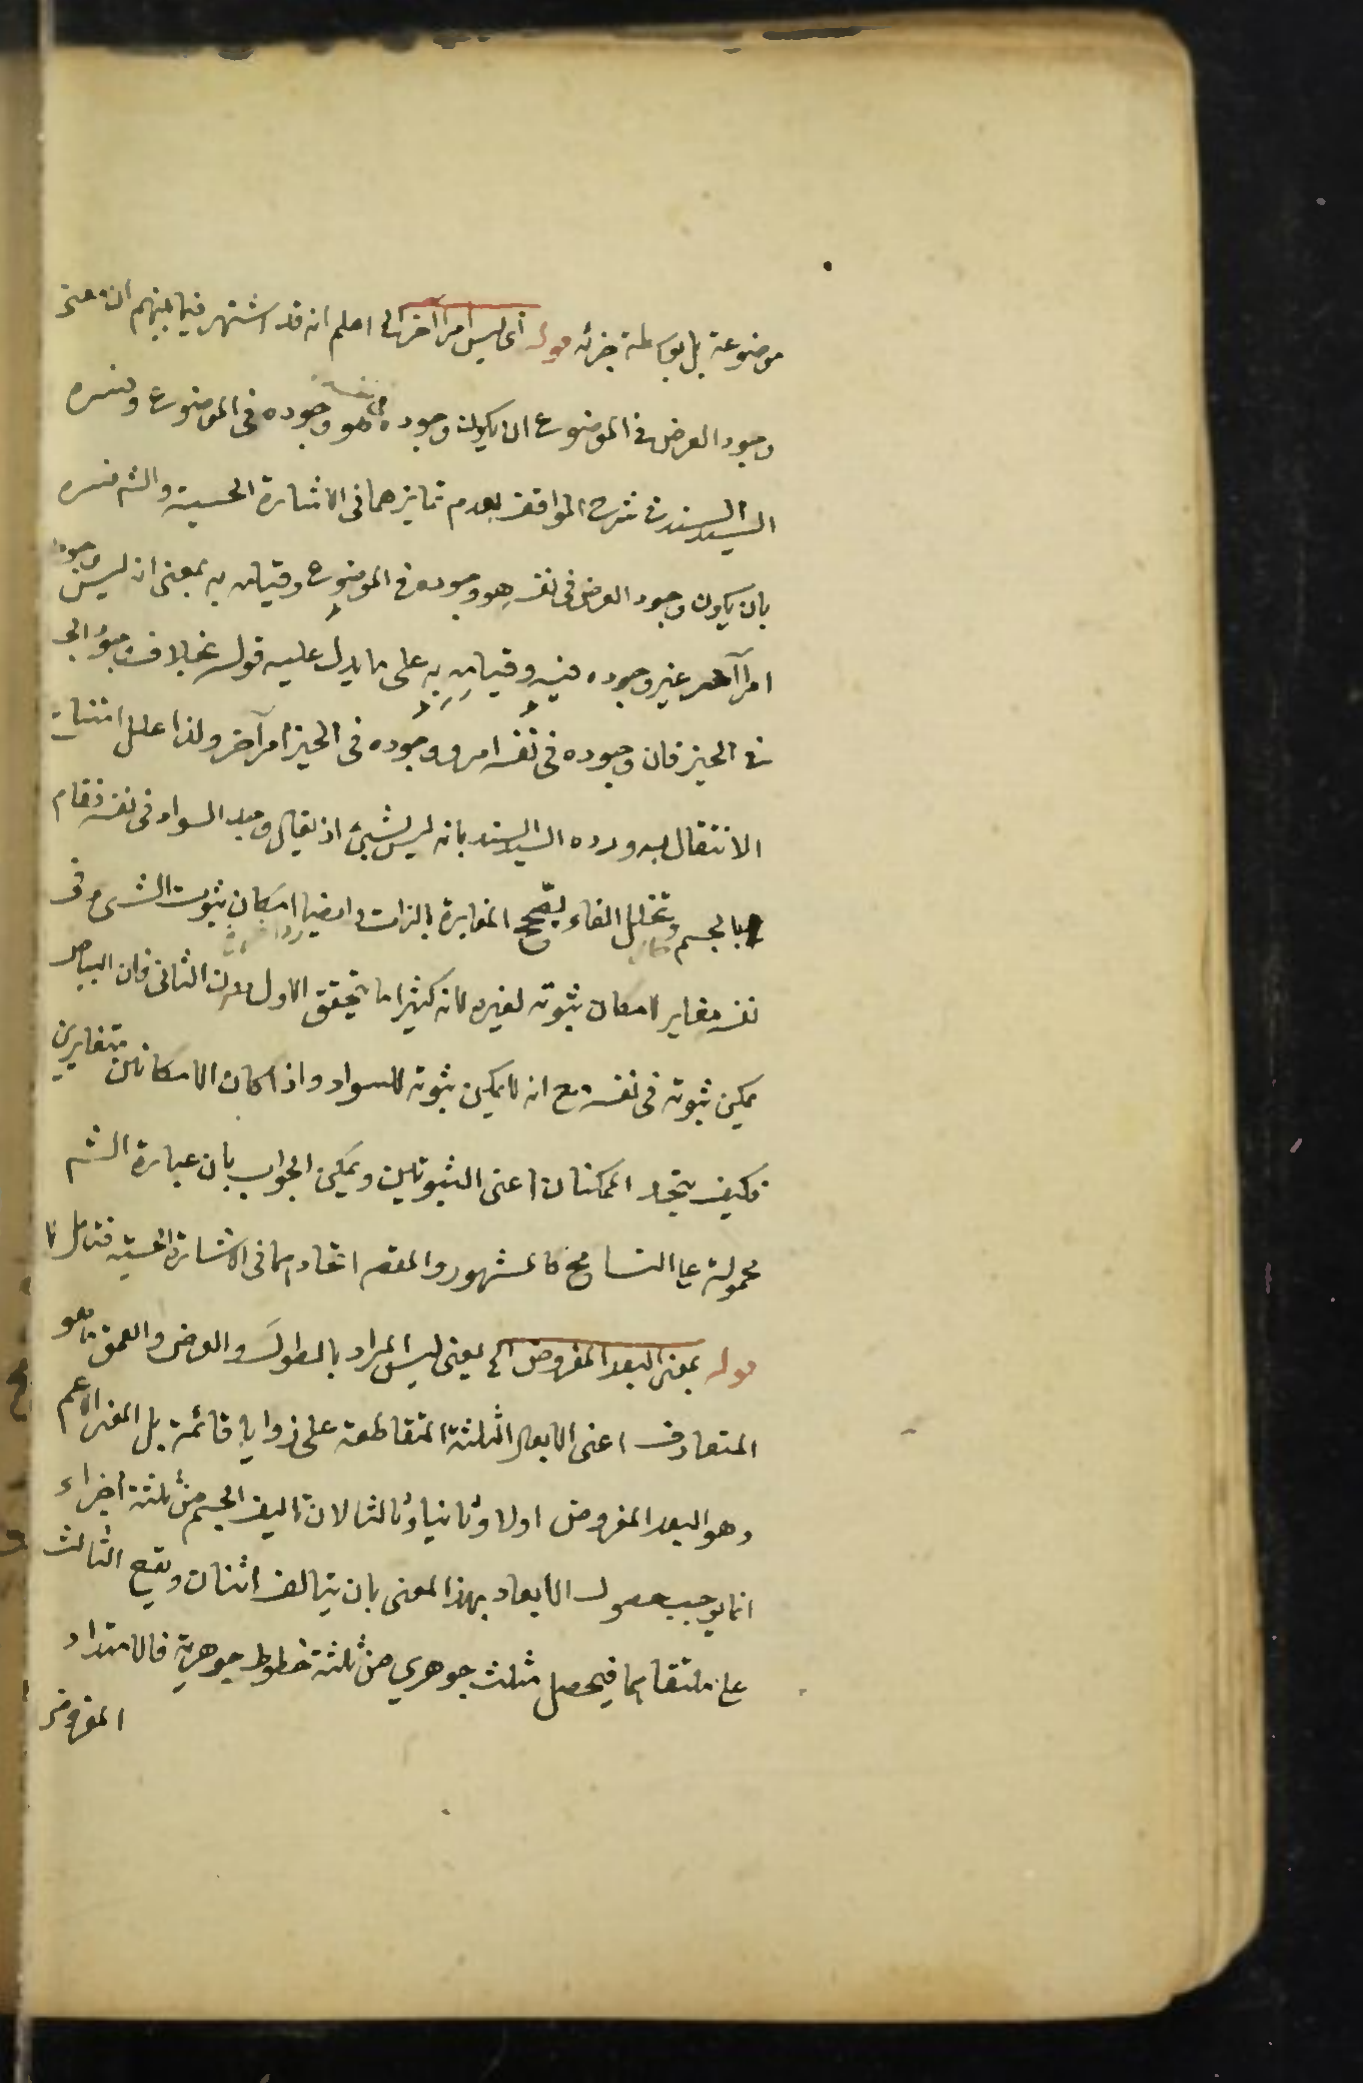 موضوعة بل بواسطة جزئه قوله اى ليس امرا آخر الخ اعلم انه قد اشتهر فيما بينهم ان معنى
وجود العرض فى الموضوع ان يكون وجوده فى نفسه هو وجوده فى الموضوع وفسره
السيد السند فى شرح المواقف بعدم تمايزهما فى الاشارة الحسية والشم فسره
بان يكون وجود العرض فى نفسه هو وجوده فى الموضوع وقيامه به بمعنى انه ليس وجوده
امرا آخر غير وجوده فيه وقيامه به على ما يدل عليه قوله بخلاف وجود الجسم
فى الحيز فان وجوده فى نفسه امر ووجوده فى الحيز امر آخر ولذا علل امتناع
الانتقال به ورده السيد السند بانه ليس بشئ اذ يقال وجد السواد فى نفسه فقام
بالجسم وتخلل الفاء يصحح المغايرة بالذات وايضا امكان ثبوت الشئ فى
نفسه مغاير لامكان ثبوته لغيره لانه كثيرا ما يتحقق الاول بدون الثانى فان البياض
يمكن ثبوته فى نفسه مع انه لا يمكن ثبوته للسواد واذا كان الامكانان متغايرين
فكيف يتحد الممكنان اعنى الثبوتين ويمكن الجواب بان عبارة الشم
محمولة على التسامح كما المشهور والمقصم اتحادهما فى الاشارة الحسية فتأمل
قوله بمعنى البعد المفروض الخ يعنى ليس المراد بالطول والعرض والعمق ما هو
المتعارف اعنى الابعاد الثلثة المتقاطعة على زوايا قائمة بل المعنى الاعم
وهو البعد المفروض اولا وثانيا وثالثا لان تاليف الجسم من ثلثة اجزاء
انما يوجب حصول الابعاد بهذا المعنى بان يتالف اثنان ويقع الثالث
على ملتقاهما فيحصل مثلث جوهري من ثلثة خطوط جوهرية فالامتداد
المفروض